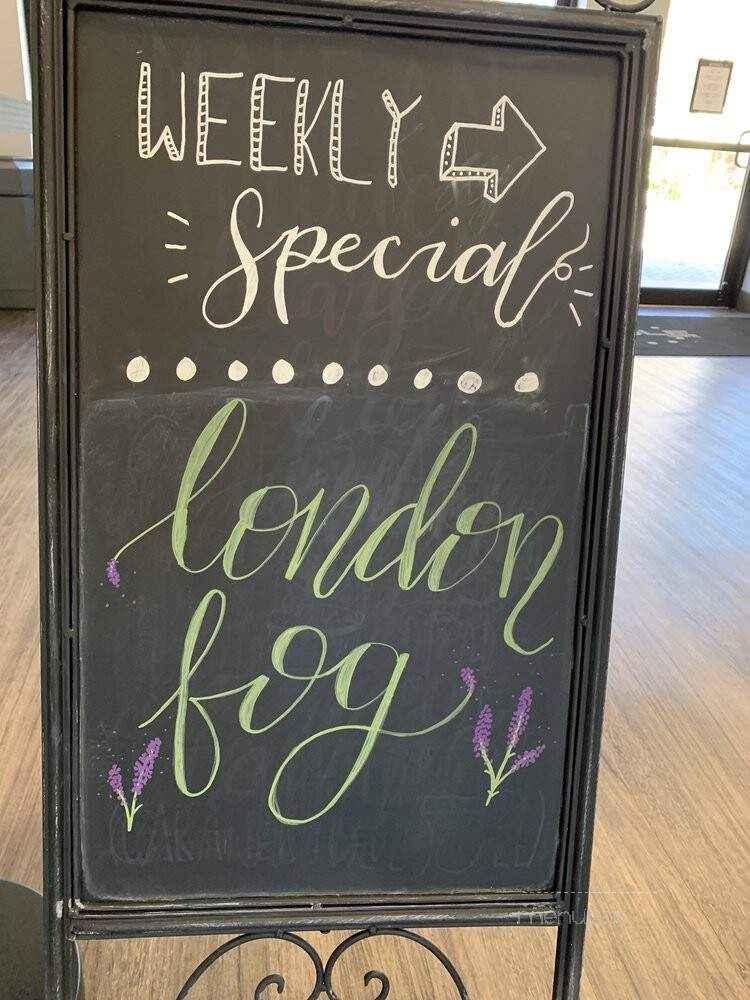 WEEKLY
Special
london
fog